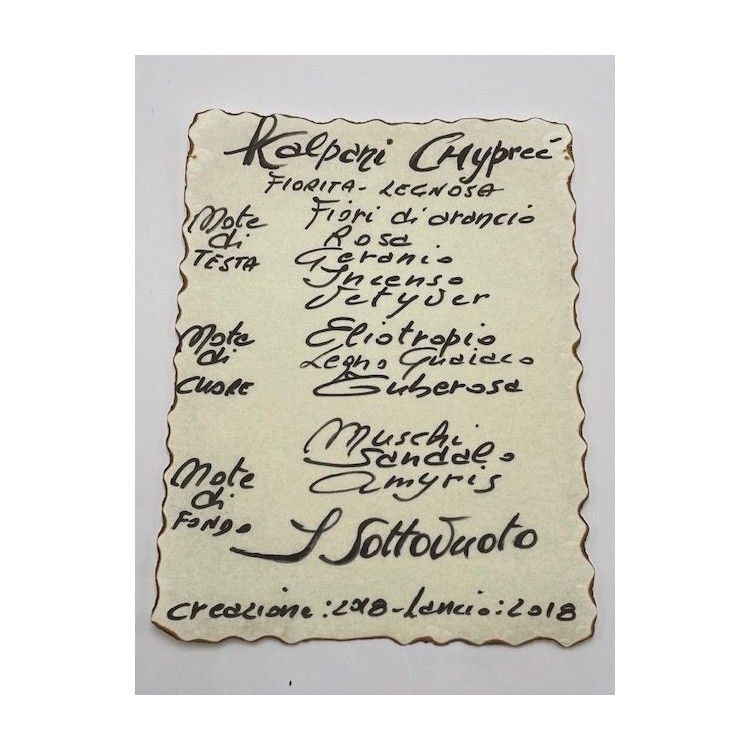 Kalpani Chypreé
FIORITA - LEGNOSA
Note di TESTA
Fiori di arancio
Rosa
Geranio
Incenso
Vetyver
Note di CUORE
Eliotropio
Legno Guaiaco
Tuberosa
Note di FONDO
Muschi
Sandalo
Amyris
I Sottovuoto
creazione: 2018 - Lancio: 2018